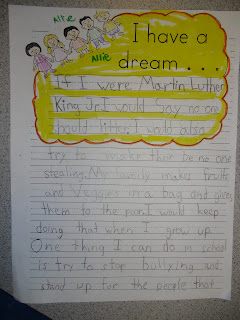 Allie
Allie
I have a
dream . . .
If I were Martin Luther
King Jr. I would say no one
should litter. I would also
try to make their be no one
stealing. My family makes fruits
and veggies in a bag and gives
them to the poor. I would keep
doing that when I grow up.
One thing I can do in school
is try to stop bullying and
stand up for the people that